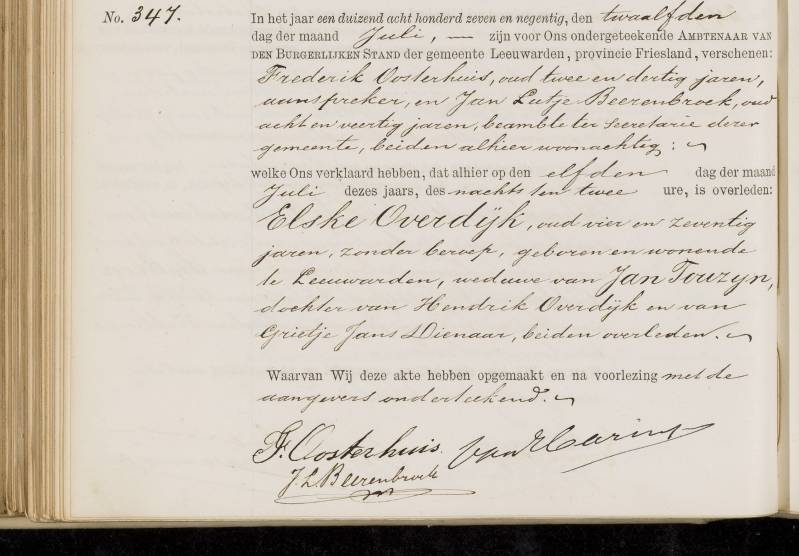 No. 347. In het jaar een duizend acht honderd zeven en negentig, den twaalfden
dag der maand Juli, — zijn voor Ons ondergeteekende AMBTENAAR VAN
DEN BURGERLIJKEN STAND der gemeente Leeuwarden, provincie Friesland, verschenen:
Frederik Oosterhuis, oud twee en dertig jaren,
aanspreker, en Jan Lutje Beerenbroek, oud
acht en veertig jaren, beambte ter secretarie dezer
gemeente, beiden alhier woonachtig:
welke Ons verklaard hebben, dat alhier op den elfden dag der maand
Juli dezes jaars, des nachts ten twee ure, is overleden:
Elske Overdijk, oud vier en zeventig
jaren, zonder beroep, geboren en wonende
te Leeuwarden, weduwe van Jan Touzyn,
dochter van Hendrik Overdijk en van
Grietje Jans Dienaar, beiden overleden.
Waarvan Wij deze akte hebben opgemaakt en na voorlezing met de
aangevers onderteekend.
F. Oosterhuis.
J. L. Beerenbroek